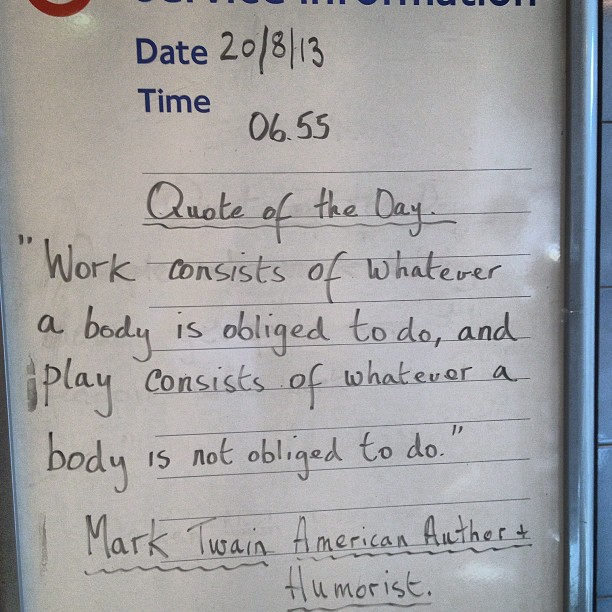 Service Information
Date 20/8/13
Time 06.55
Quote of the Day.
"Work consists of whatever
a body is obliged to do, and
play consists of whatever a
body is not obliged to do."
Mark Twain American Author +
Humorist.